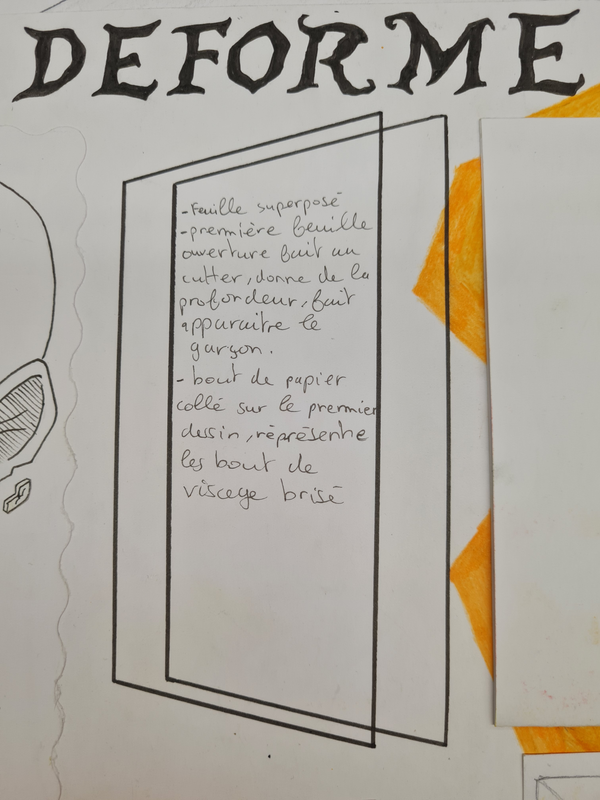 DEFORME
-Feuille superposé
-première feuille
ouverture fait au
cutter, donne de la
profondeur, fait
apparaitre le
garçon.
- bout de papier
collé sur le premier
dessin, réprésente
les bout de
viscage brisé